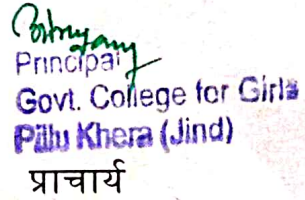 Principal
Govt. College for Girls
Pillu Khera (Jind)
प्राचार्य